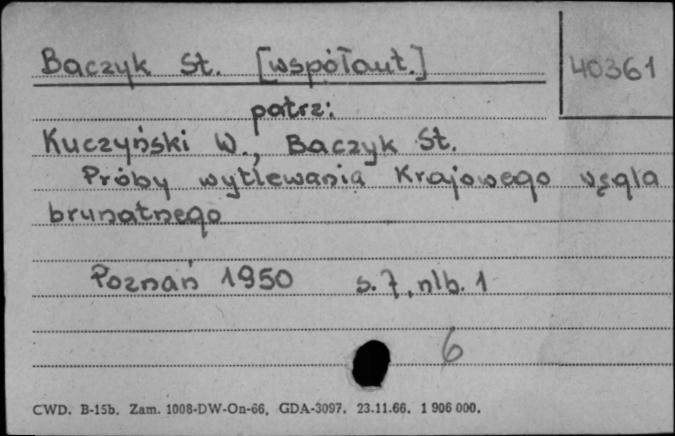 Baczyk St. [współaut.]
40361
patrz:
Kuczyński W., Baczyk St.
Próby wytlewania Krajowego węgla
brunatnego
Poznań 1950 s. 7, nlb. 1
6
CWD. B-15b. Zam. 1008-DW-On-66. GDA-3097. 23.11.66. 1 906 000.